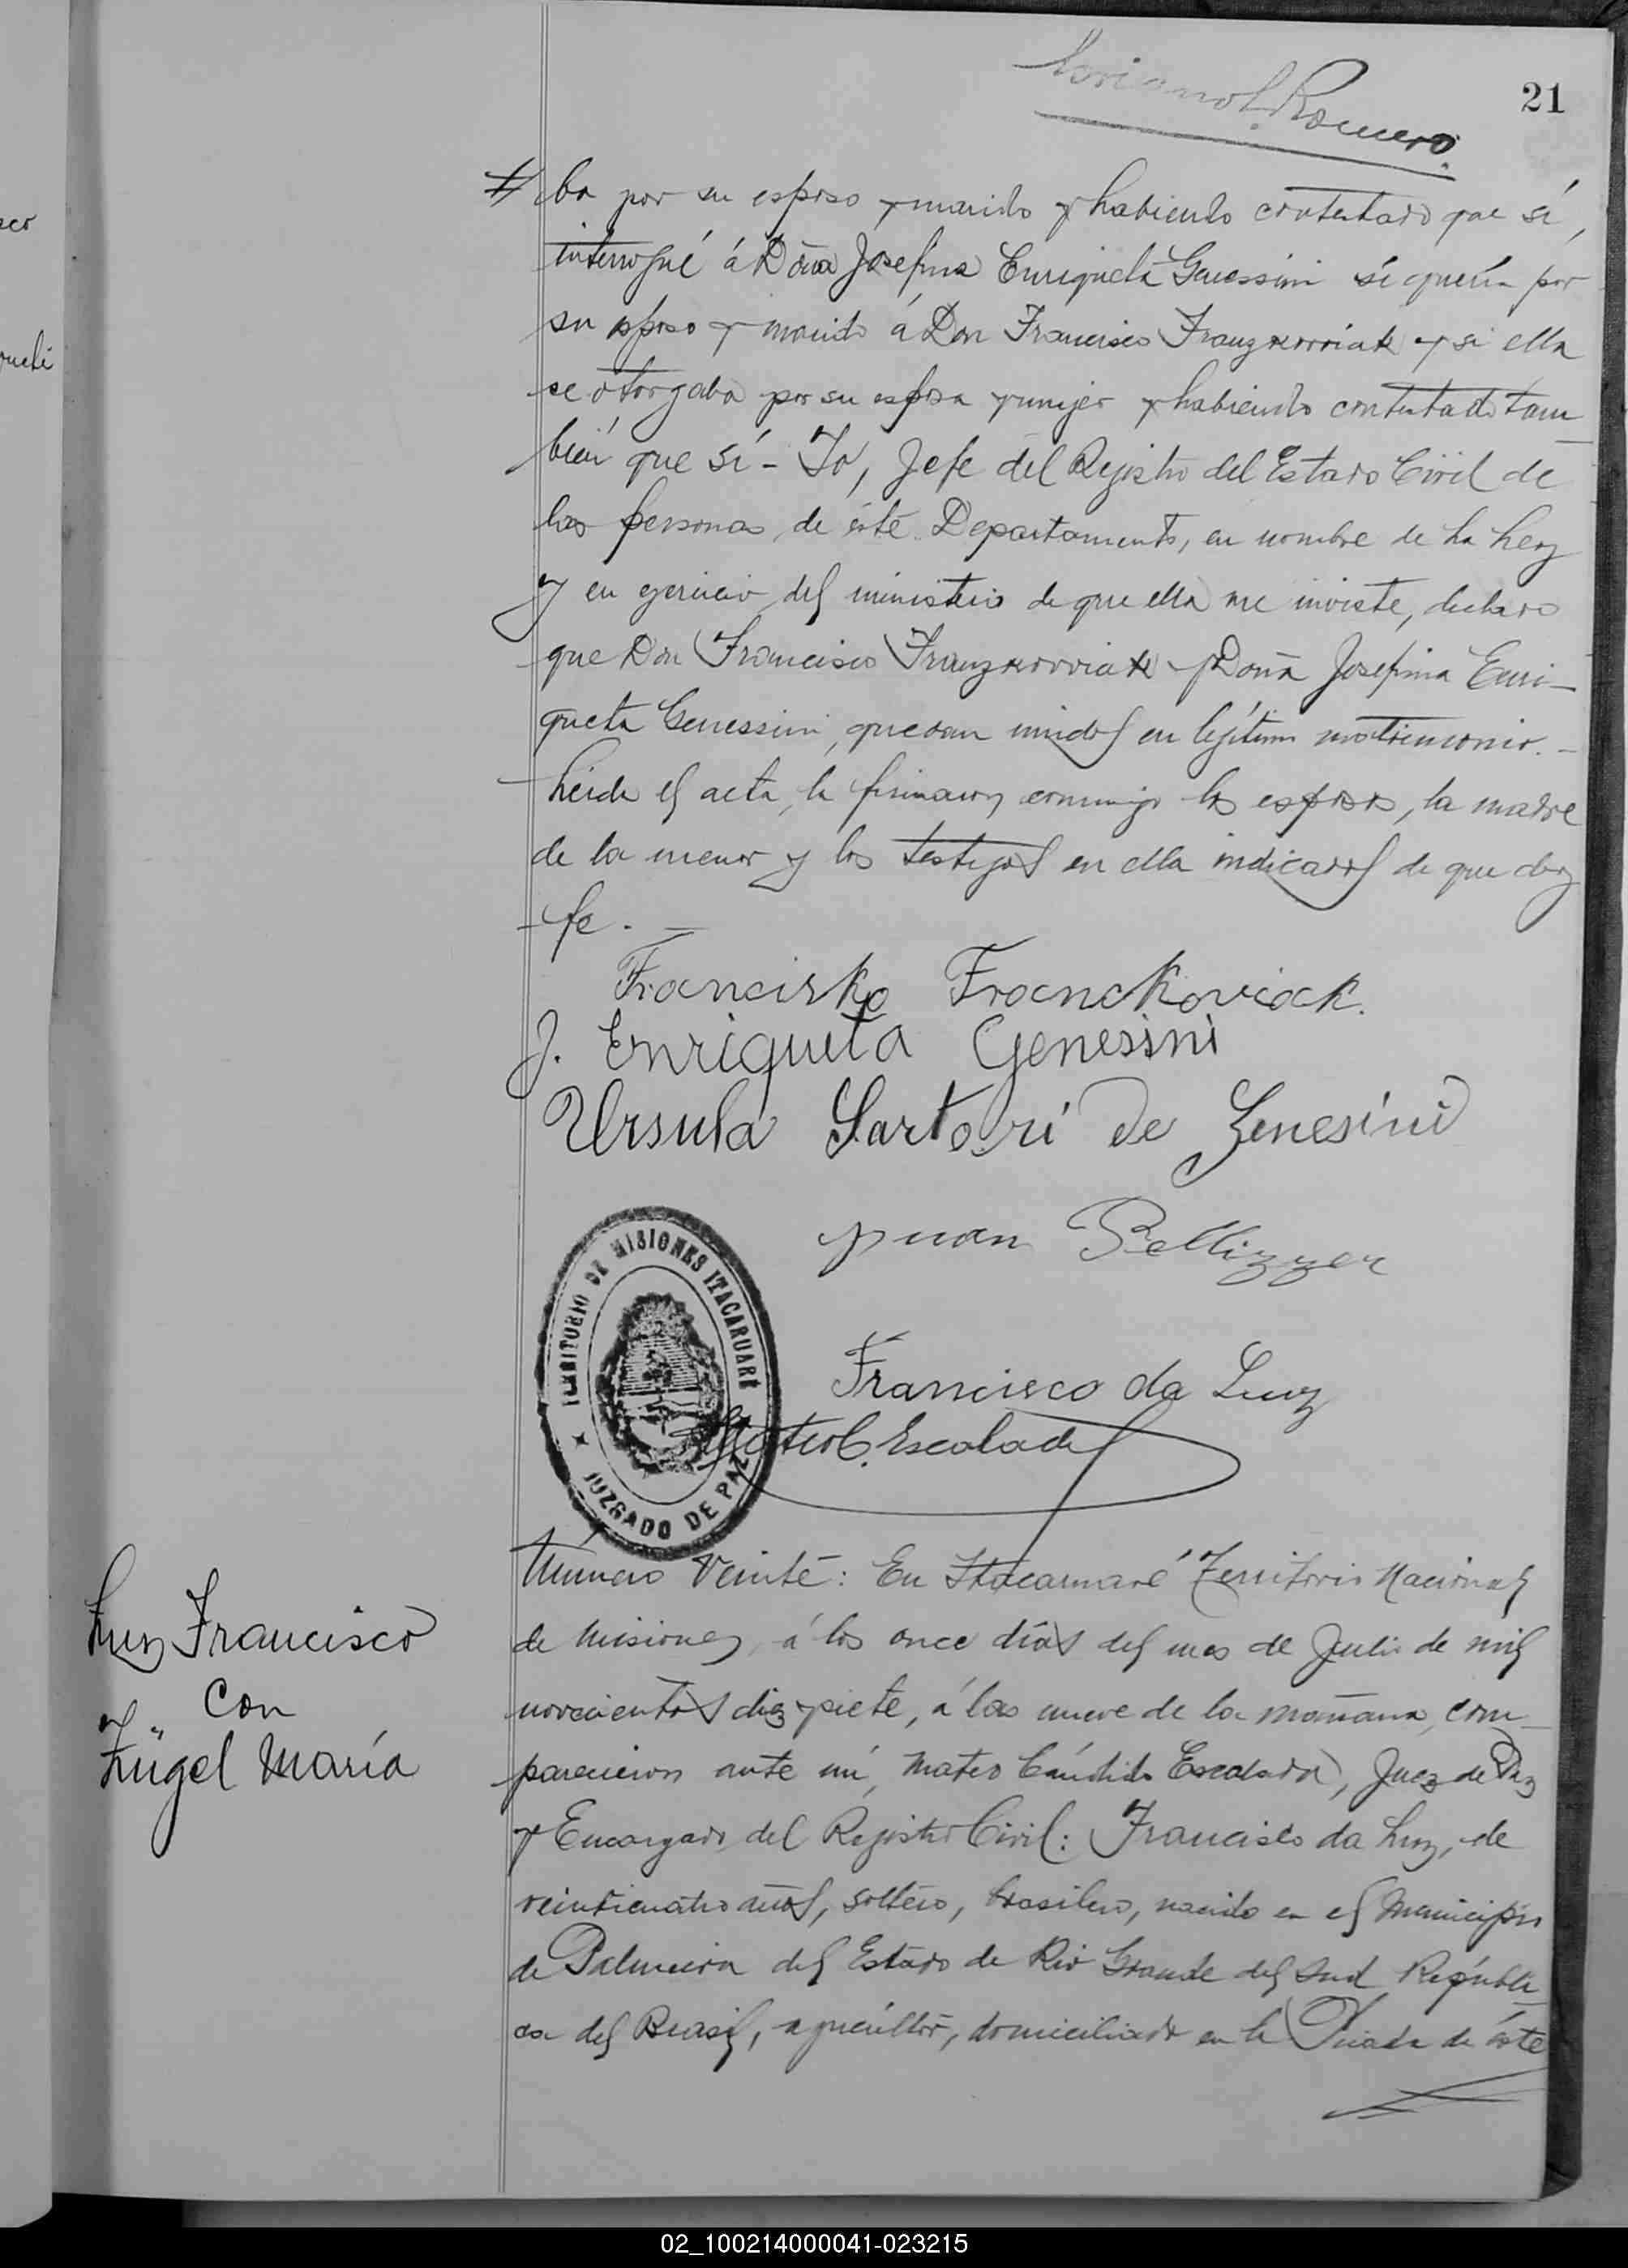 Romero
21
ba por su esposo y marido y habiendo contestado que sí,
interrogué á Doña Josefina Enriqueta Genessini si quería por
su esposo y marido á Don Francisco Franzkowiak y si ella
se otorgaba por su esposa y mujer y habiendo contestado tam
bién que sí - Yo, Jefe del Rejistro del Estado Civil de
las personas de éste Departamento, en nombre de la Ley
y en ejercicio del ministerio de que ella me inviste, declaro
que Don Francisco Franzkowiak y Doña Josefina Enri-
queta Genessini, quedan unidos en lejítimo matrimonio. -
Leida el acta, la firmaron conmigo los esposos, la madre
de la menor y los testigos en ella indicados de que doy
fe. -
Francisko Franckoviack.
J. Enriqueta Genesini
Ursula Sartori de Zenesini
Juan Pellizzer
TERRITORIO DE MISIONES ITACARUARÉ
JUZGADO DE PAZ
Francisco da Luz
Mateo C. Escalada
Luz Francisco
con
Zügel María
Número Veinte: En Itacaruaré Territorio Nacional
de Misiones, á los once días del mes de Julio de mil
novecientos diez y siete, á las nueve de la mañana, com-
parecieron ante mí, Mateo Cándido Escalada, Juez de Paz
y Encargado del Registro Civil: Francisco da Luz, de
veinticuatro años, soltero, brasilero, nacido en el Municipio
de Palmeira del Estado de Rio Grande del Sud Repúbli-
ca del Brasil, agricultor, domiciliado en la Picada de éste
02_100214000041-023215